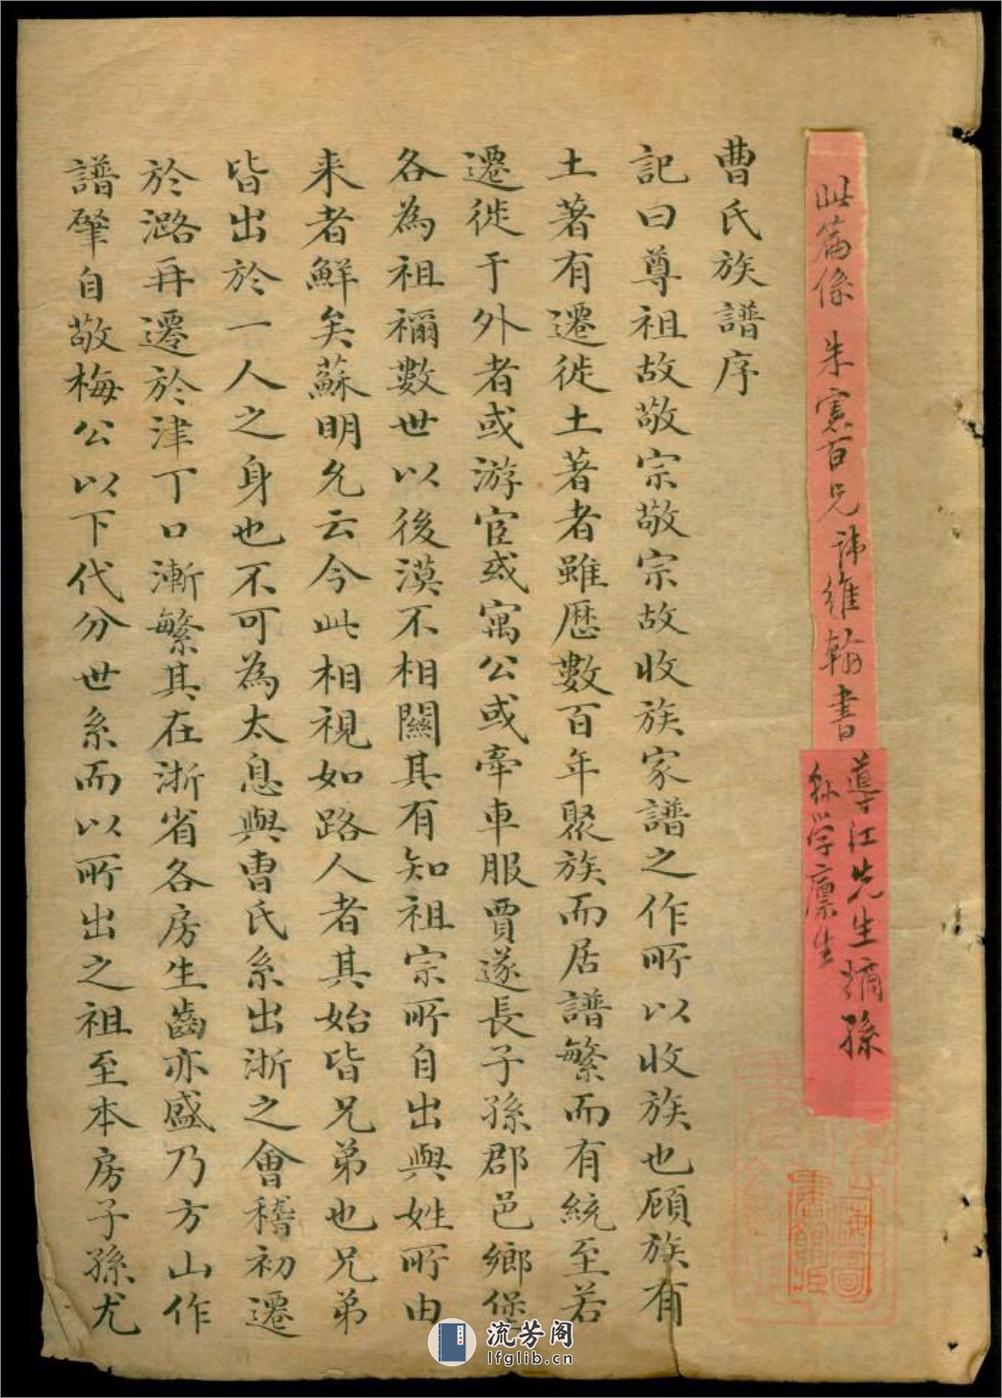 此篇係 朱憲百兄諱維翰書
導江先生嫡孫
縣学廩生
曹氏族譜序
記曰尊祖故敬宗敬宗故收族家譜之作所以收族也顧族有
土著有遷徙土著者雖歷數百年聚族而居譜繁而有統至若
遷徙于外者或游宦或寓公或牽車服賈遂長子孫郡邑鄉保
各為祖禰數世以後漠不相關其有知祖宗所自出與姓所由
来者鮮矣蘇明允云今此相視如路人者其始皆兄弟也兄弟
皆出於一人之身也不可為太息與曹氏系出浙之會稽初遷
於潞再遷於津丁口漸繁其在浙省各房生齒亦盛乃方山作
譜肇自敬梅公以下代分世系而以所出之祖至本房子孫尤
流芳阁
lfglib.cn